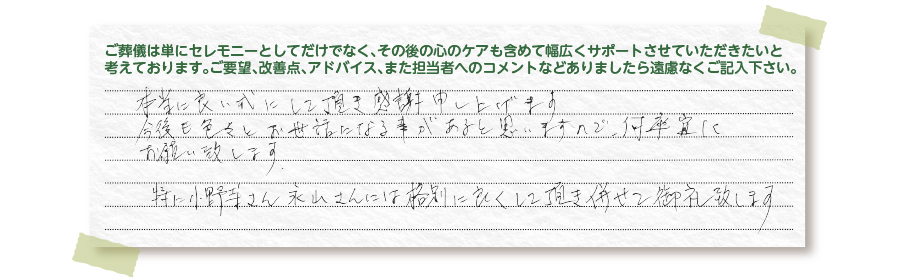 ご葬儀は単にセレモニーとしてだけでなく、その後の心のケアも含めて幅広くサポートさせていただきたいと
考えております。ご要望、改善点、アドバイス、また担当者へのコメントなどありましたら遠慮なくご記入下さい。
本当に良い式にして頂き感謝申し上げます
今後も色々とお世話になる事があると思いますので、何卒宜しく
お願い致します。
特に小野寺さん永山さんには格別に良くして頂き併せて御礼致します